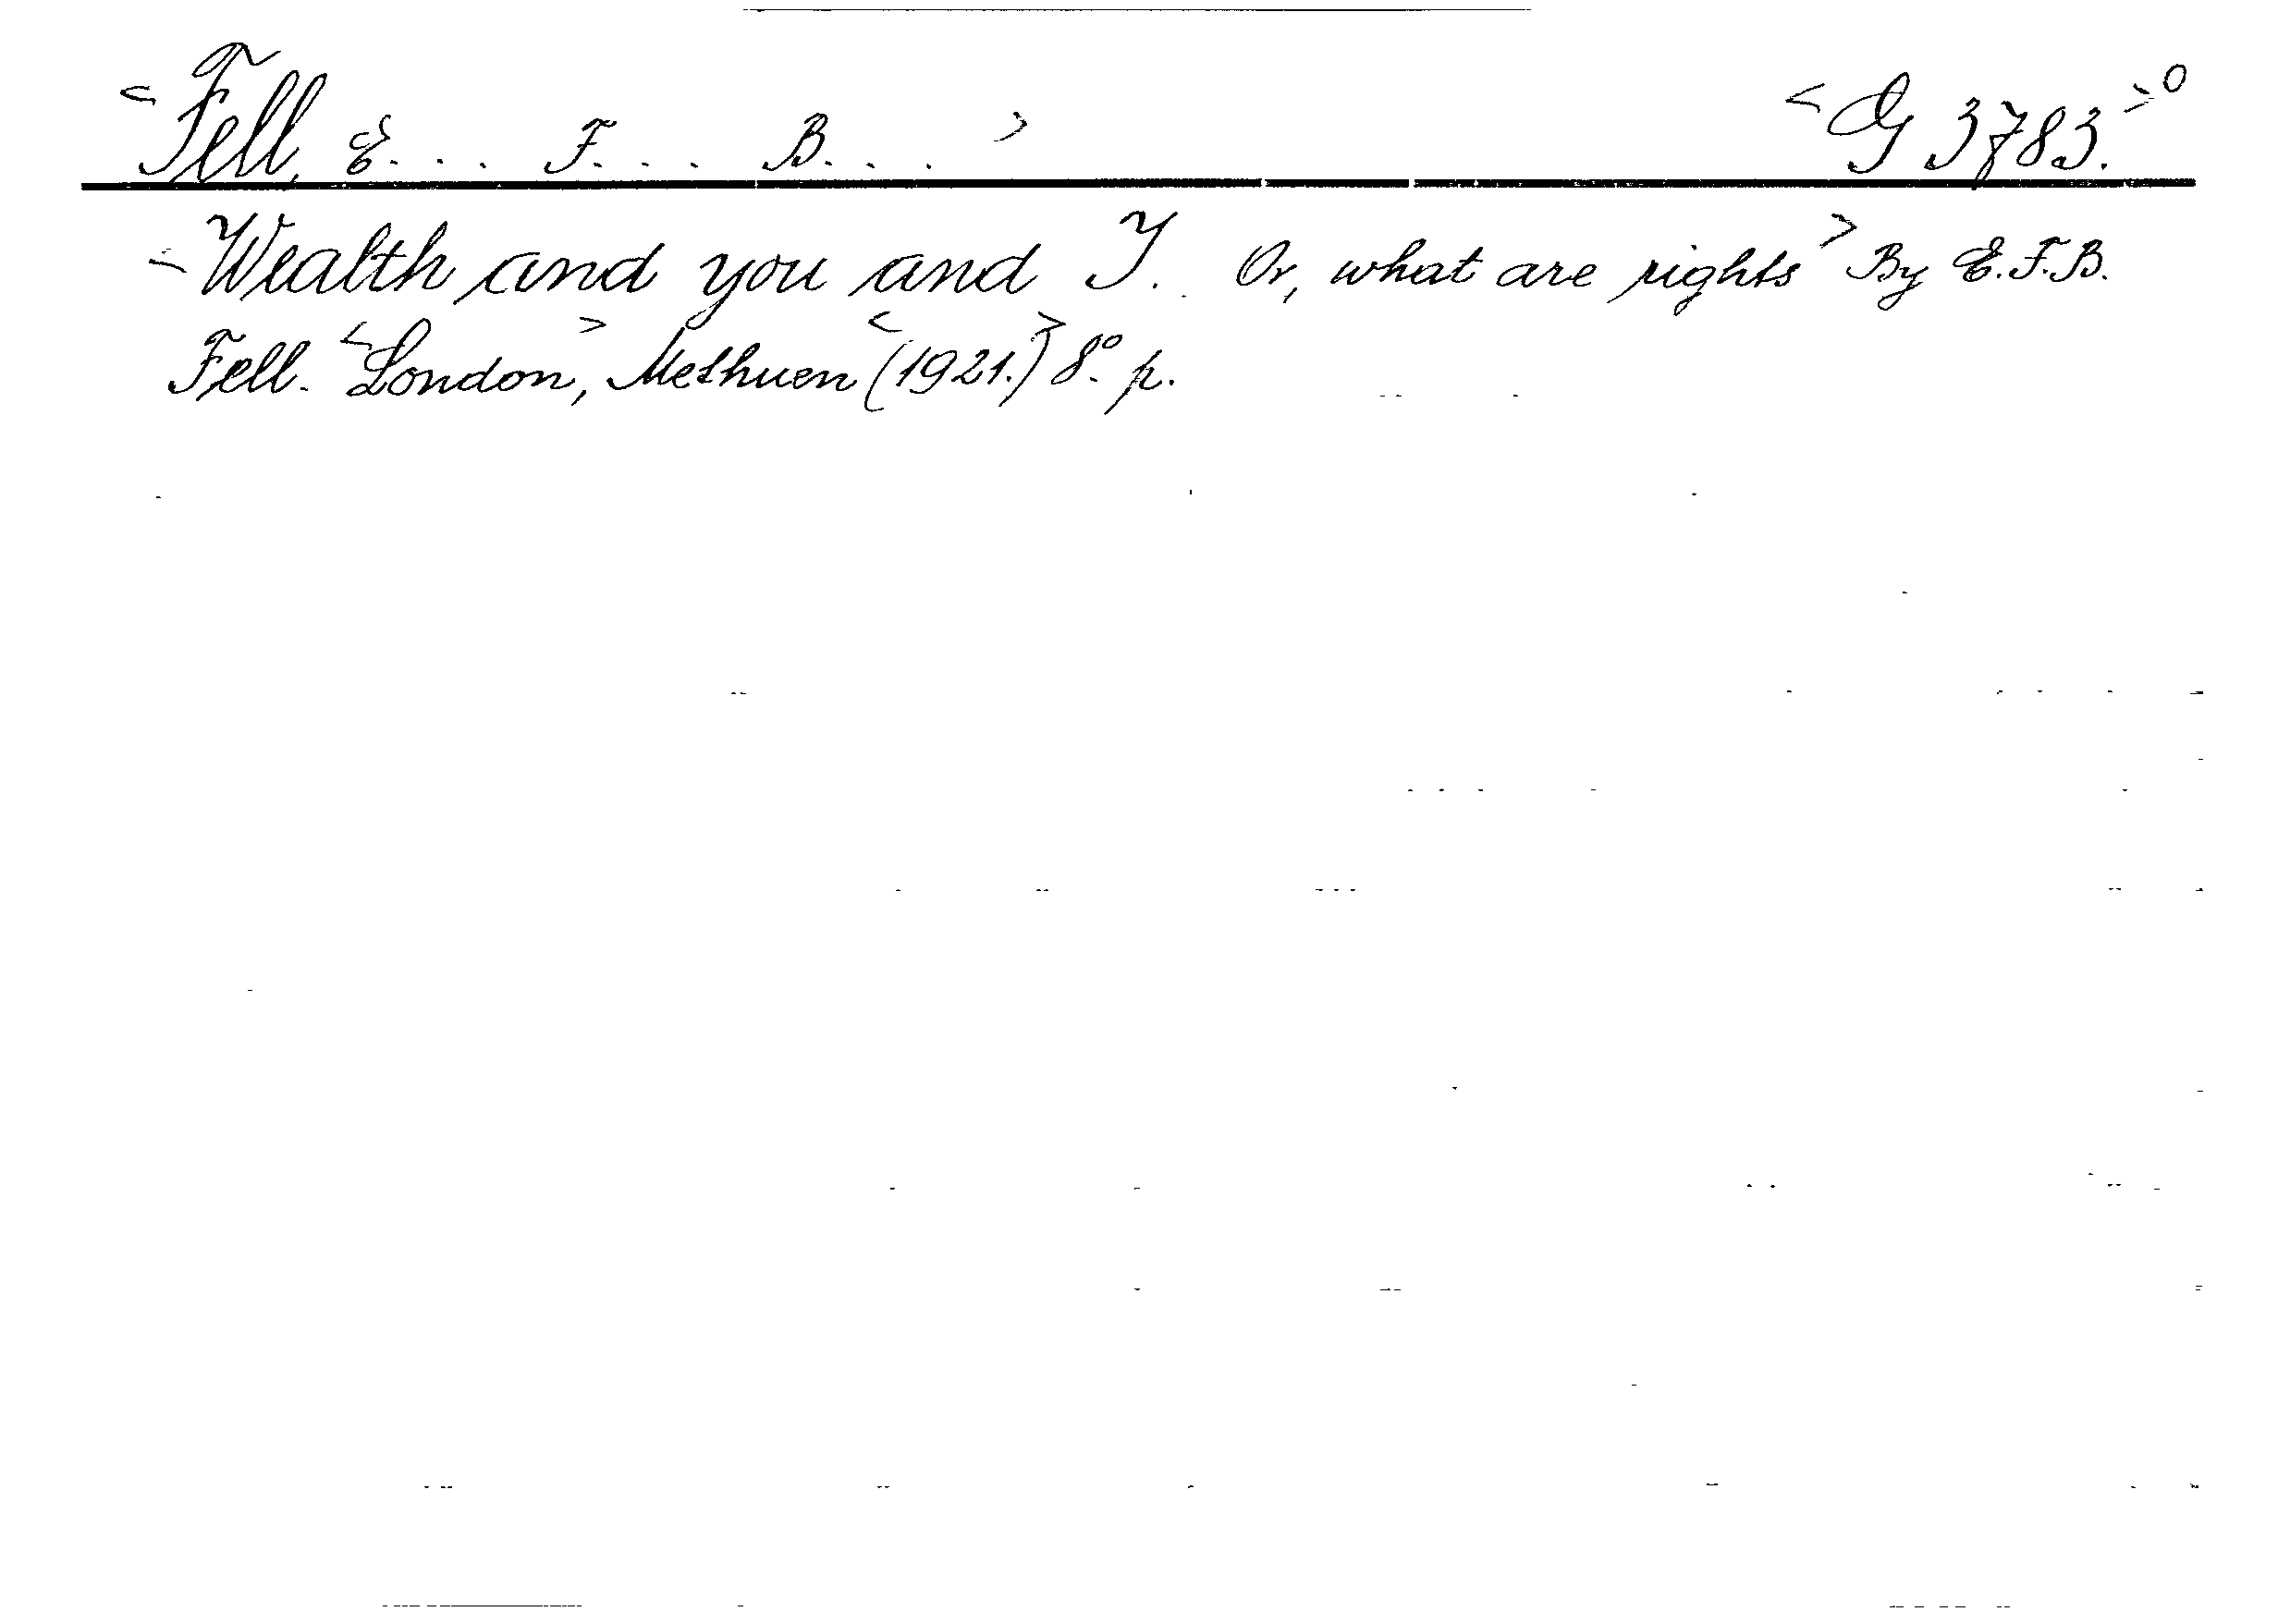 <Fell, E... F... B...> <G 3783.>⁰
<Wealth and you and I. Or, what are rights> By E.F.B.
Fell. <London>, Methuen <(1921.)> 8° p.